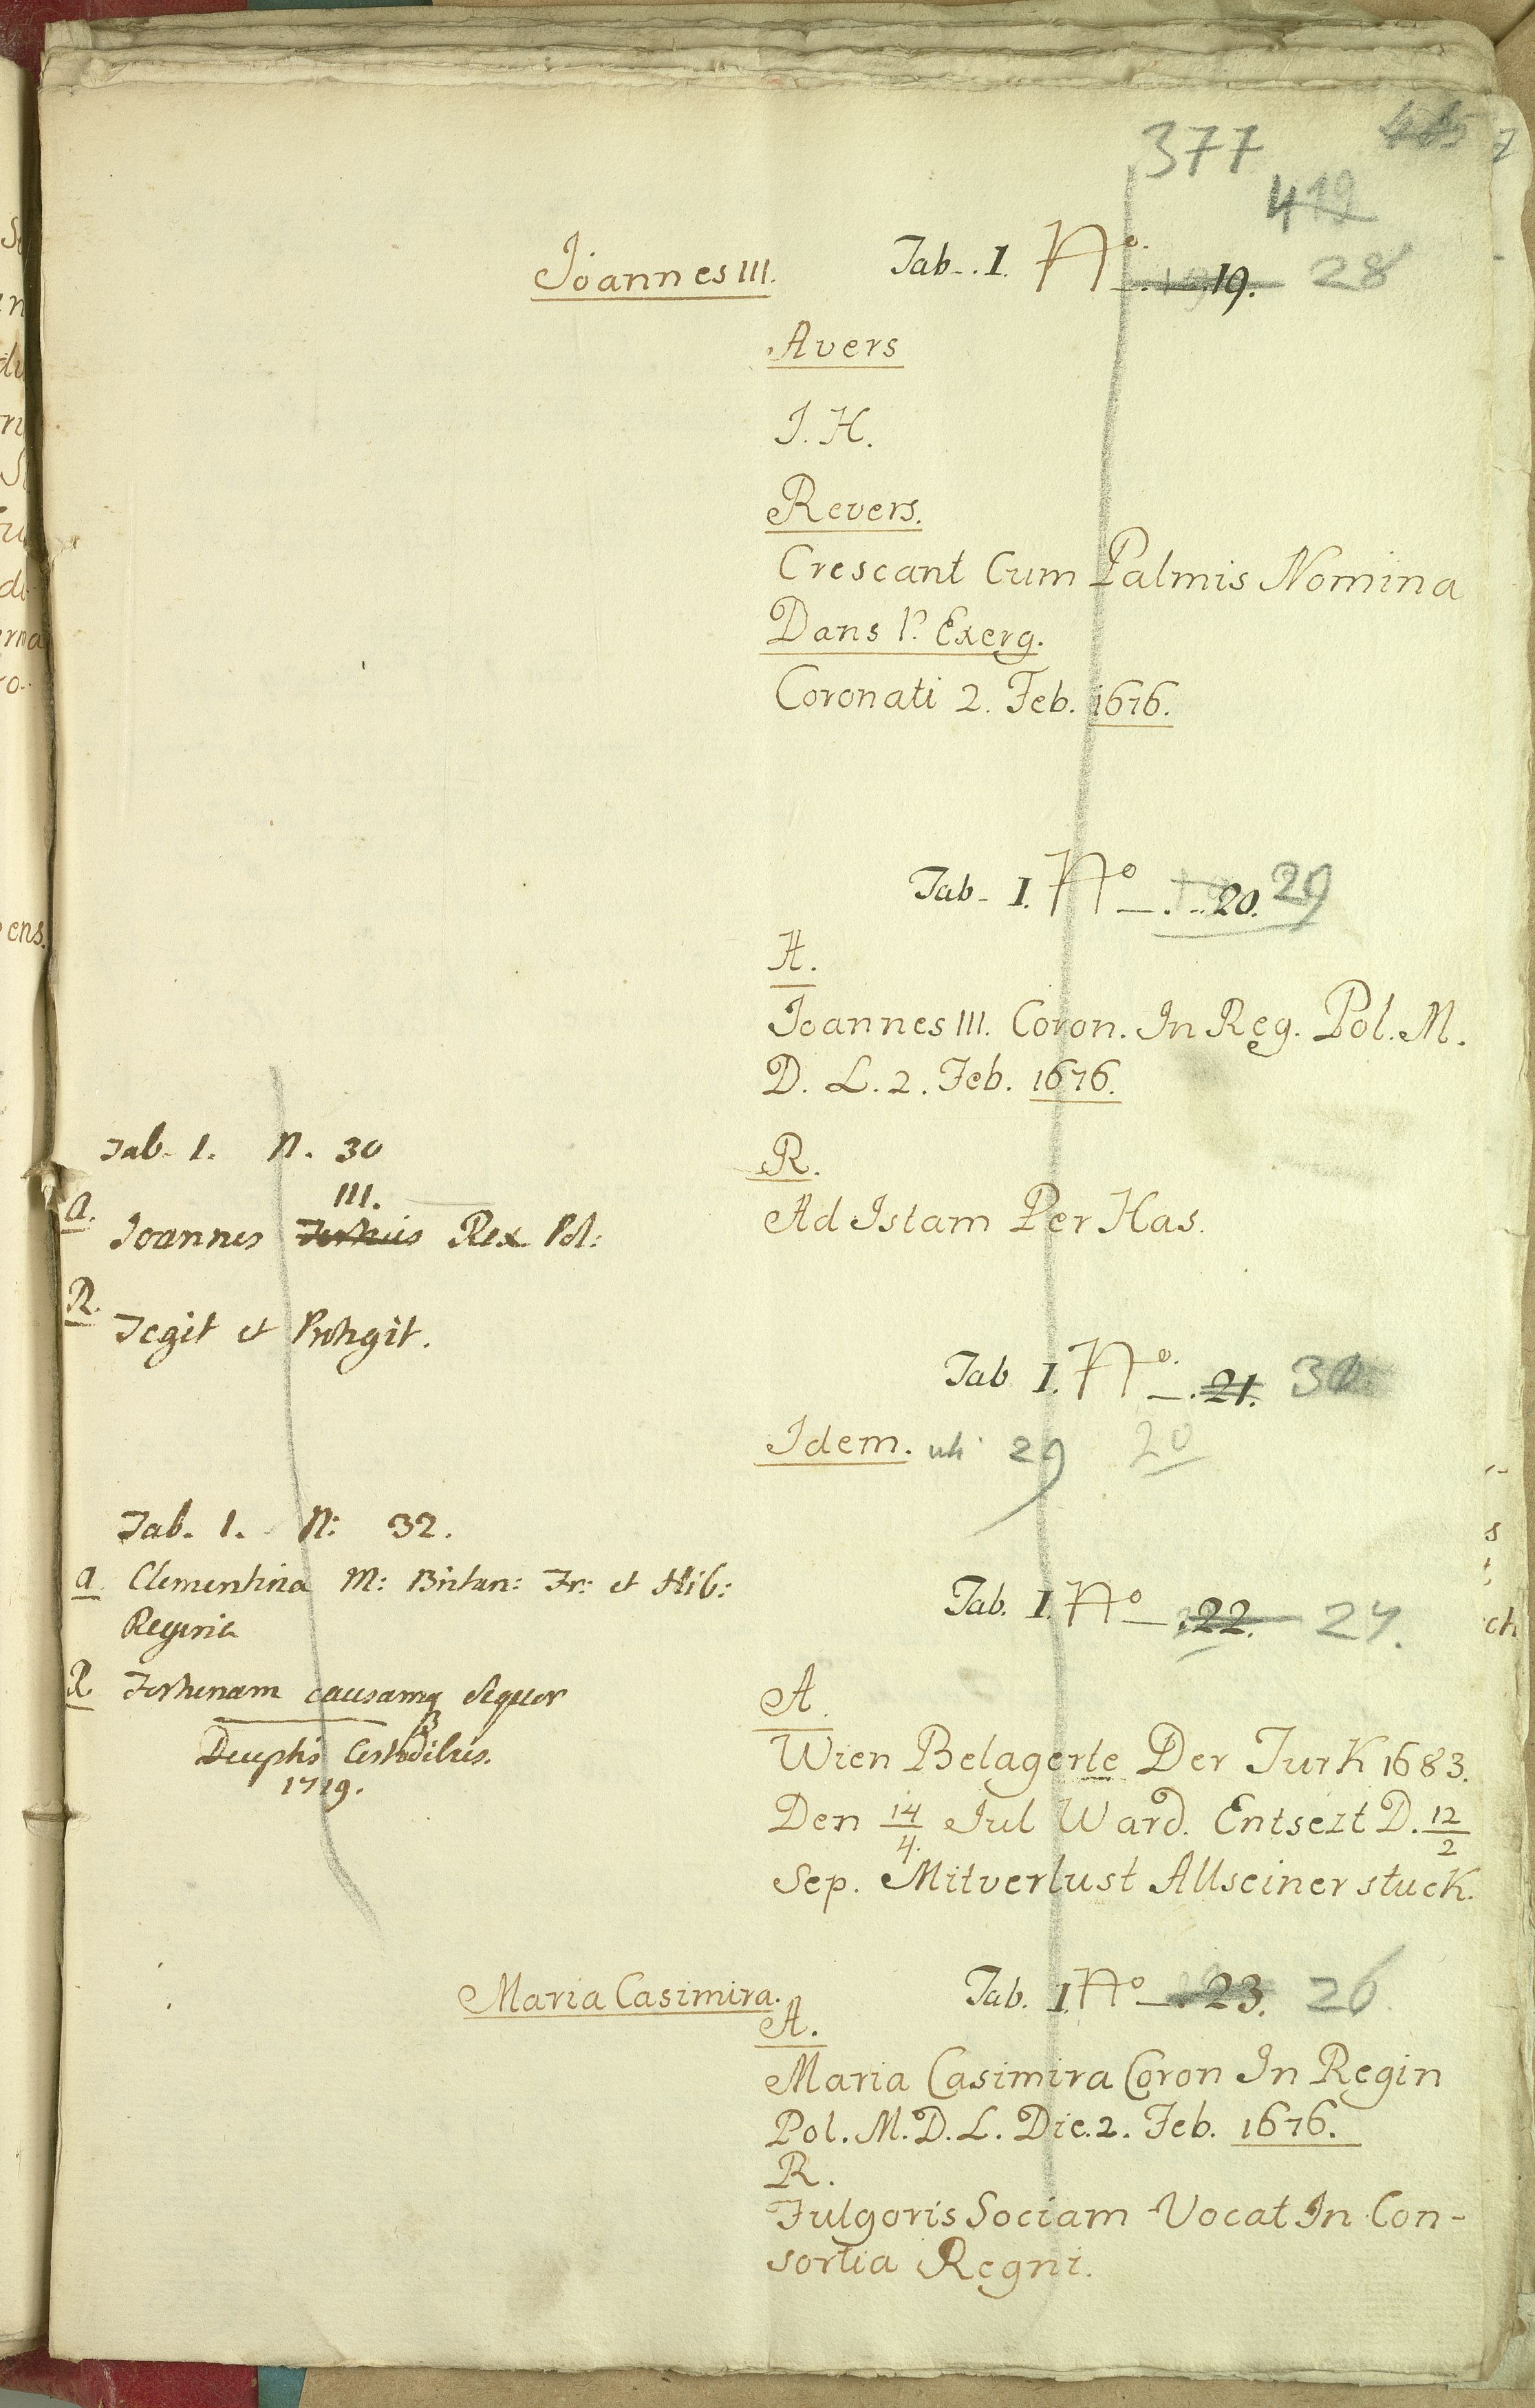 377
419
Joannes III. Tab. I. No. 19. 28
Avers
J. H.
Revers.
Crescant Cum Palmis Nomina
Dans l'. Exerg.
Coronati 2. Feb. 1676.
Tab. I. No 20. 29
A.
Joannes III. Coron. In Reg. Pol. M.
D. L. 2. Feb. 1676.
R.
Ad Istam Per Has.
Tab I. No. 21. 30
Idem. uti 29 20
Tab. I. No 22. 27.
A.
Wien Belagerte Der Turk 1683.
Den 14/4. Jul Ward. Entsezt D. 12/2
Sep. Mitverlust Allseiner stuck.
Maria Casimira. Tab. I. No 23. 26
A.
Maria Casimira Coron In Regin
Pol. M. D. L. Die. 2. Feb. 1676.
R.
Fulgoris Sociam Vocat In Con-
sortia Regni.
Tab. I. N. 30
III.
A. Joannes Tertius Rex Pol:
R. Tegit et Protegit.
Tab. I. N: 32.
A. Clementina M: Britan: Fr: et Hib:
Regina
R. Fortunam causamq Sequor
Deceptis Custodibus.
1719.